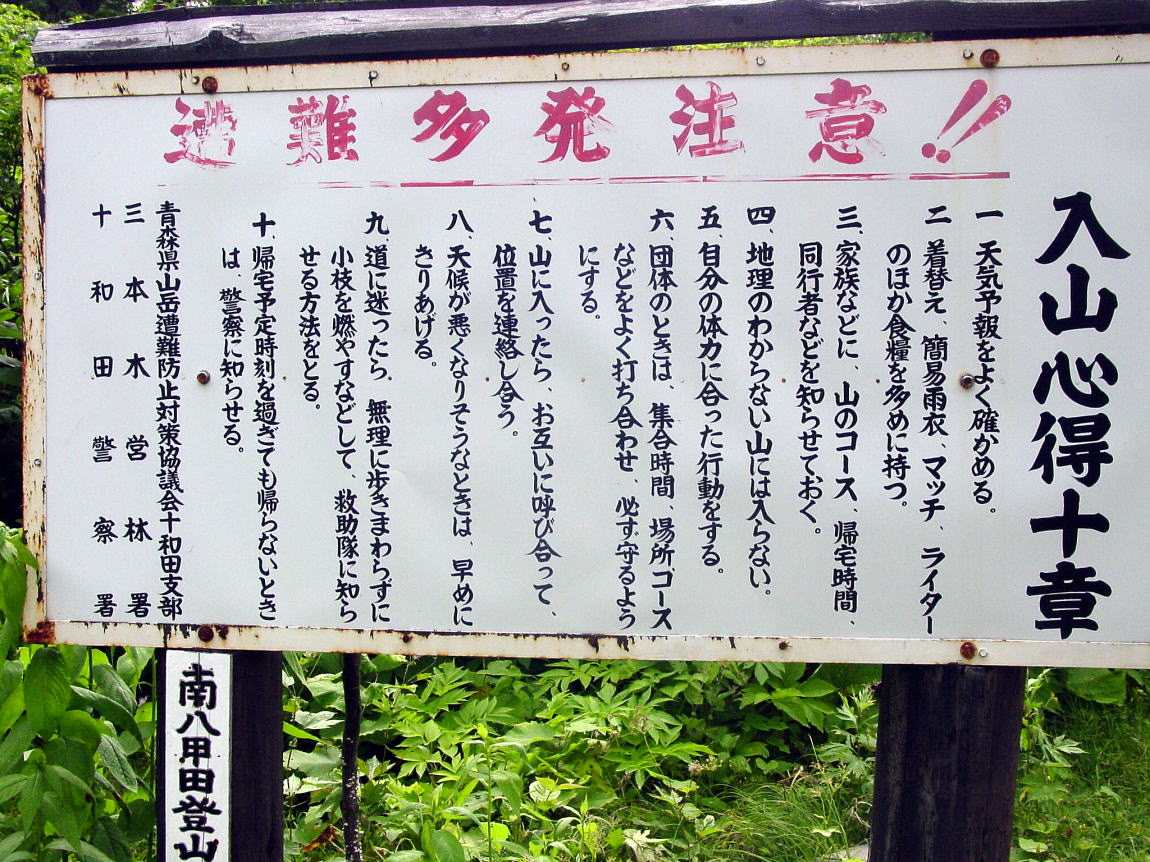 遭難多発注意!!
入山心得十章
一、天気予報をよく確かめる。
二、着替え、簡易雨衣、マッチ、ライター
のほか食糧を多めに持つ。
三、家族などに、山のコース、帰宅時間、
同行者などを知らせておく。
四、地理のわからない山には入らない。
五、自分の体力に合った行動をする。
六、団体のときは、集合時間、場所、コース
などをよく打ち合わせ、必ず守るよう
にする。
七、山に入ったら、お互いに呼び合って、
位置を連絡し合う。
八、天候が悪くなりそうなときは、早めに
きりあげる。
九、道に迷ったら、無理に歩きまわらずに
小枝を燃やすなどして、救助隊に知ら
せる方法をとる。
十、帰宅予定時刻を過ぎても帰らないとき
は、警察に知らせる。
青森県山岳遭難防止対策協議会十和田支部
三本木営林署
十和田警察署
南八甲田登山